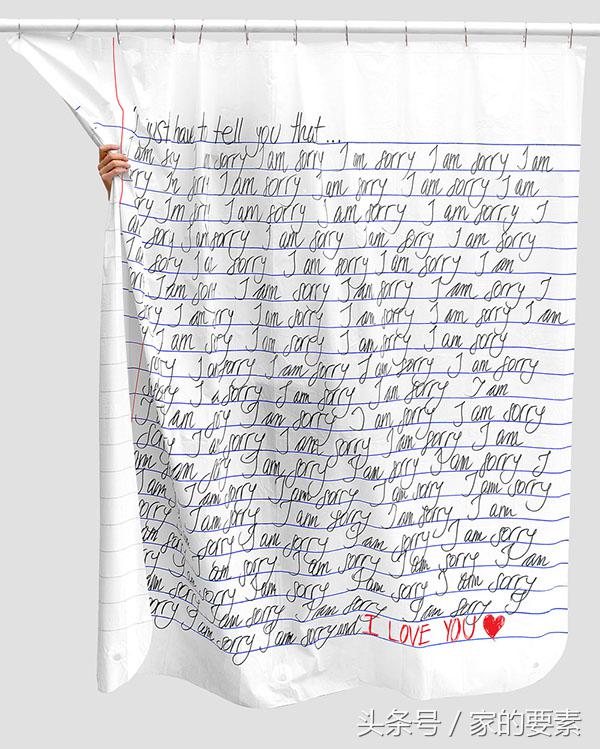 just have to tell you that...
am sorry I am sorry I am sorry I am sorry I am
I am sorry I am sorry I am sorry I am
I am sorry I am sorry I am sorry I
am sorry I am sorry I am sorry I am sorry I am sorry
sorry I am sorry I am sorry I am
I am sorry I am sorry I am sorry I am sorry I
I am sorry I am sorry I am sorry I am sorry I am
I am sorry I am sorry I am sorry I am sorry
sorry I am sorry I am sorry I am sorry I am sorry
sorry I am sorry I am sorry I am sorry I am
I am sorry I am sorry I am sorry I am sorry
sorry I am sorry I am sorry I am sorry I am
am sorry I am sorry I am sorry I am sorry I
I am sorry I am sorry I am sorry I am sorry
I am sorry I am sorry I am sorry I am
sorry I am sorry I am sorry I am sorry
sorry I am sorry I am sorry I am sorry I am
sorry I am sorry I am sorry I am sorry
sorry I am sorry I am sorry I am sorry I
sorry I am sorry I am sorry and I LOVE YOU
头条号 / 家的要素